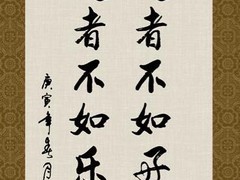 者不如好
者不如乐
庚寅年春月